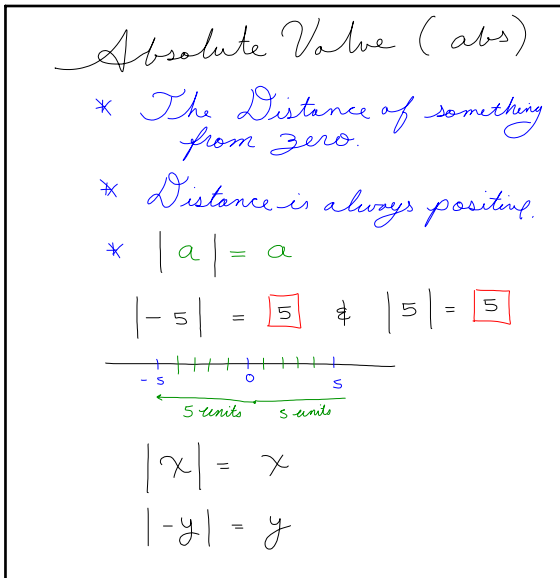 Absolute Value (abs)
* The Distance of something
from zero.
* Distance is always positive.
* |a| = a
|-5| = 5 & |5| = 5
-5 0 5
5 units 5 units
|x| = x
|-y| = y